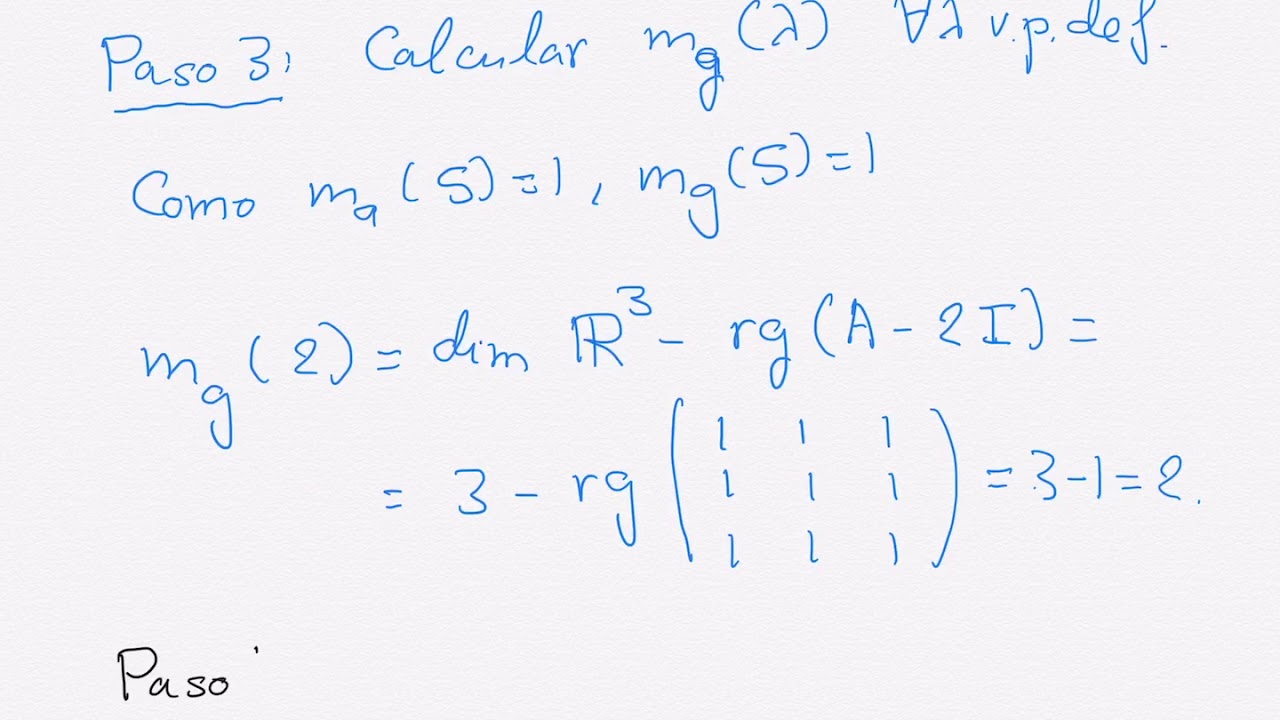 Paso 3: Calcular m_g(λ) ∀λ v.p. def.
Como m_a(5)=1, m_g(5)=1
m_g(2) = dim ℝ³ - rg(A - 2I) =
= 3 - rg ( 1 1 1
1 1 1
1 1 1 ) = 3-1 = 2.
Paso